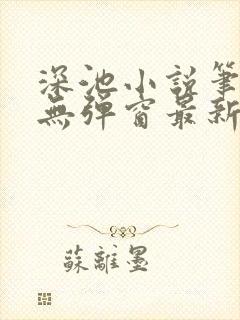 深池小説筆
無彈窗最新
蘇離墨